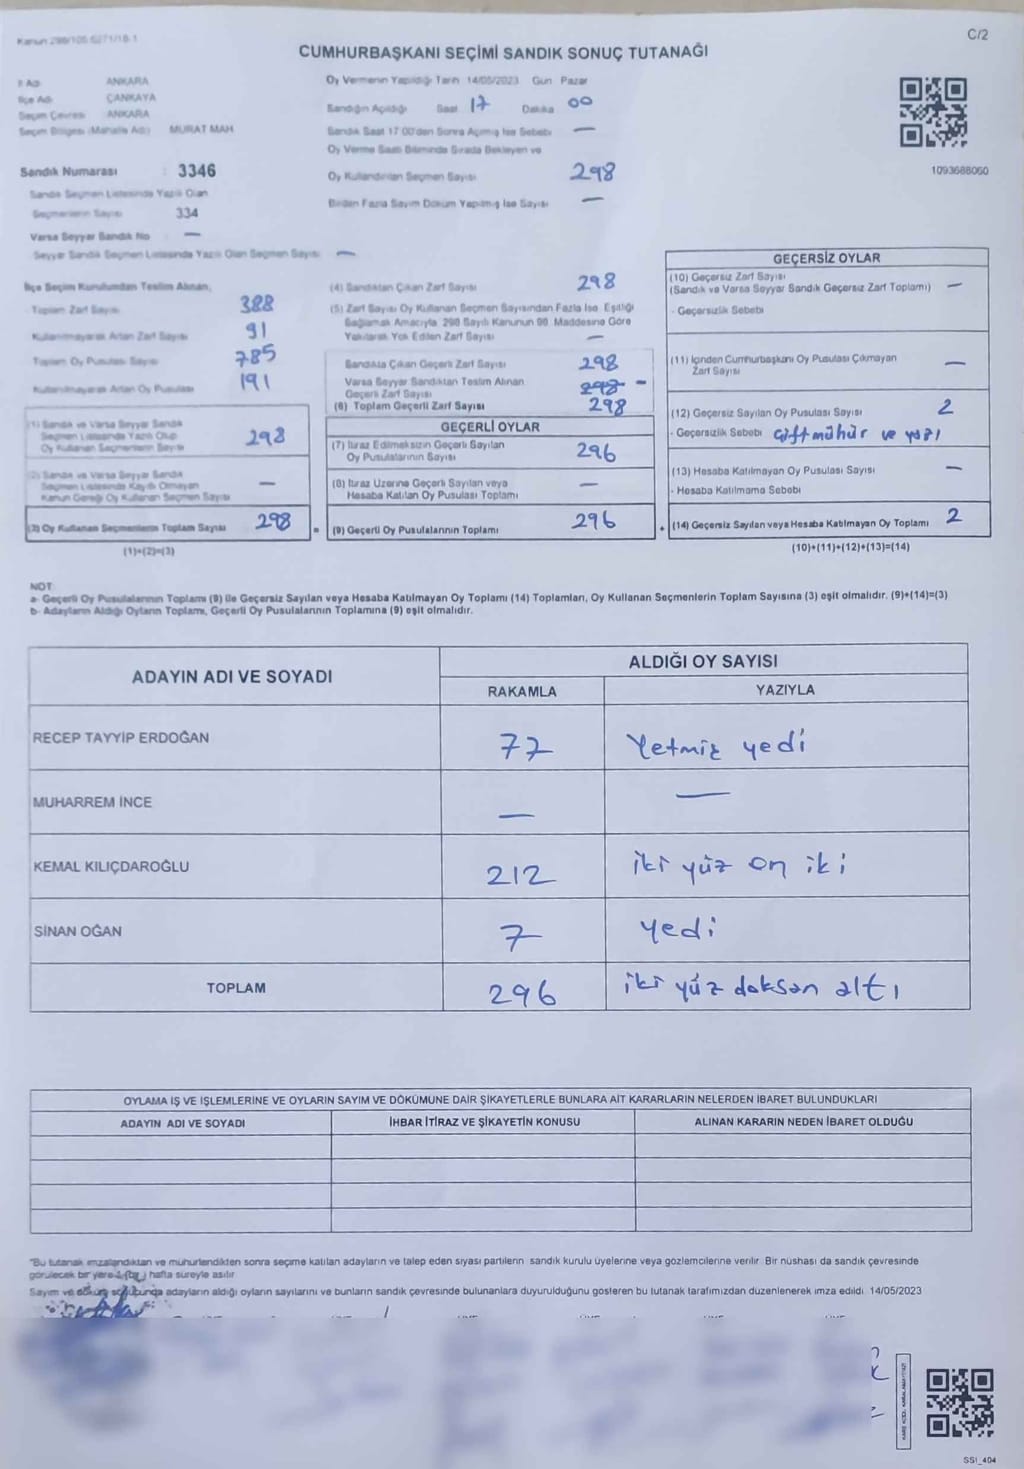 Kanun 298/105 6271/18-1
C/2
CUMHURBAŞKANI SEÇİMİ SANDIK SONUÇ TUTANAĞI
İl Adı ANKARA
İlçe Adı ÇANKAYA
Seçim Çevresi ANKARA
Seçim Bölgesi (Mahalle Adı) MURAT MAH
Sandık Numarası : 3346
Sandık Seçmen Listesinde Yazılı Olan
Seçmenlerin Sayısı 334
Varsa Seyyar Sandık No —
Seyyar Sandık Seçmen Listesinde Yazılı Olan Seçmen Sayısı —
Oy Vermenin Yapıldığı Tarih 14/05/2023 Gün Pazar
Sandığın Açıldığı Saat 17 Dakika 00
Sandık Saat 17 00'den Sonra Açılmış İse Sebebi —
Oy Verme Saati Bitiminde Sırada Bekleyen ve
Oy Kullandırılan Seçmen Sayısı 298
Birden Fazla Sayım Döküm Yapılmış İse Sayısı —
1093688060
İlçe Seçim Kurulundan Teslim Alınan,
Toplam Zarf Sayısı 388
Kullanılmayarak Artan Zarf Sayısı 91
Toplam Oy Pusulası Sayısı 785
Kullanılmayarak Artan Oy Pusulası 191
(1) Sandık ve Varsa Seyyar Sandık
Seçmen Listesinde Yazılı Olup
Oy Kullanan Seçmenlerin Sayısı 298
(2) Sandık ve Varsa Seyyar Sandık
Seçmen Listesinde Kayıtlı Olmayan
Kanun Gereği Oy Kullanan Seçmen Sayısı —
(3) Oy Kullanan Seçmenlerin Toplam Sayısı 298
(1)+(2)=(3)
(4) Sandıktan Çıkan Zarf Sayısı 298
(5) Zarf Sayısı Oy Kullanan Seçmen Sayısından Fazla İse, Eşitliği
Sağlamak Amacıyla, 298 Sayılı Kanunun 98. Maddesine Göre
Yakılarak Yok Edilen Zarf Sayısı —
Sandıkta Çıkan Geçerli Zarf Sayısı 298
Varsa Seyyar Sandıktan Teslim Alınan
Geçerli Zarf Sayısı 298 -
(6) Toplam Geçerli Zarf Sayısı 298
GEÇERLİ OYLAR
(7) İtiraz Edilmeksizin Geçerli Sayılan
Oy Pusulalarının Sayısı 296
(8) İtiraz Üzerine Geçerli Sayılan veya
Hesaba Katılan Oy Pusulası Toplamı —
= (9) Geçerli Oy Pusulalarının Toplamı 296
GEÇERSİZ OYLAR
(10) Geçersiz Zarf Sayısı
(Sandık ve Varsa Seyyar Sandık Geçersiz Zarf Toplamı) —
- Geçersizlik Sebebi
(11) İçinden Cumhurbaşkanı Oy Pusulası Çıkmayan
Zarf Sayısı —
(12) Geçersiz Sayılan Oy Pusulası Sayısı 2
- Geçersizlik Sebebi Çift mühür ve yazı
(13) Hesaba Katılmayan Oy Pusulası Sayısı —
- Hesaba Katılmama Sebebi
+ (14) Geçersiz Sayılan veya Hesaba Katılmayan Oy Toplamı 2
(10)+(11)+(12)+(13)=(14)
NOT:
a- Geçerli Oy Pusulalarının Toplamı (9) ile Geçersiz Sayılan veya Hesaba Katılmayan Oy Toplamı (14) Toplamları, Oy Kullanan Seçmenlerin Toplam Sayısına (3) eşit olmalıdır. (9)+(14)=(3)
b- Adayların Aldığı Oyların Toplamı, Geçerli Oy Pusulalarının Toplamına (9) eşit olmalıdır.
ADAYIN ADI VE SOYADI
ALDIĞI OY SAYISI
RAKAMLA YAZIYLA
RECEP TAYYİP ERDOĞAN 77 Yetmiş yedi
MUHARREM İNCE — —
KEMAL KILIÇDAROĞLU 212 iki yüz on iki
SİNAN OĞAN 7 yedi
TOPLAM 296 iki yüz doksan altı
OYLAMA İŞ VE İŞLEMLERİNE VE OYLARIN SAYIM VE DÖKÜMÜNE DAİR ŞİKAYETLERLE BUNLARA AİT KARARLARIN NELERDEN İBARET BULUNDUKLARI
ADAYIN ADI VE SOYADI İHBAR İTİRAZ VE ŞİKAYETİN KONUSU ALINAN KARARIN NEDEN İBARET OLDUĞU
"Bu tutanak imzalandıktan ve mühürlendikten sonra seçime katılan adayların ve talep eden siyasi partilerin sandık kurulu üyelerine veya gözlemcilerine verilir Bir nüshası da sandık çevresinde
görülecek bir yere 1 (bir) hafta süreyle asılır
Sayım ve döküm sonucunda adayların aldığı oyların sayılarını ve bunların sandık çevresinde bulunanlara duyurulduğunu gösteren bu tutanak tarafımızdan düzenlenerek imza edildi. 14/05/2023
SSI_404